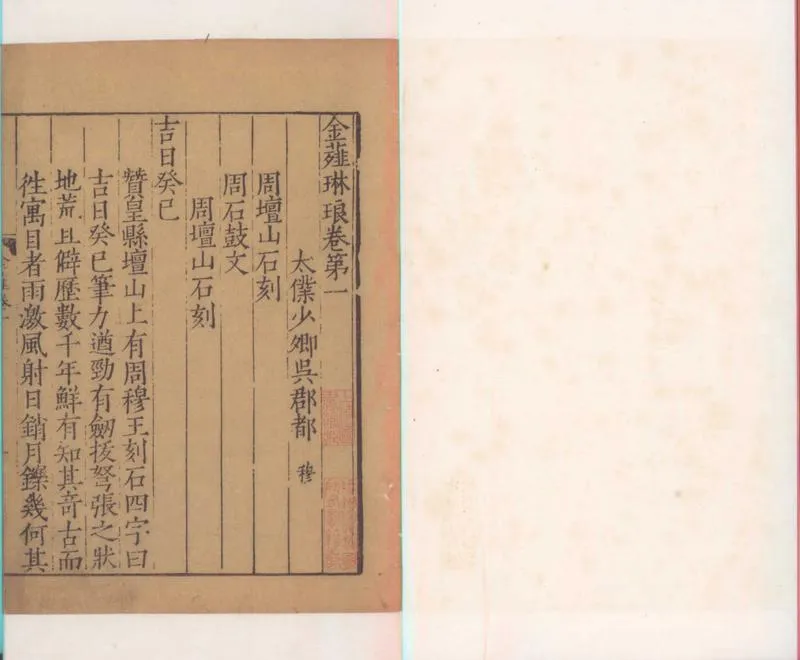 金薤琳琅卷第一
太僕少卿吳郡都 穆
周壇山石刻
周石鼓文
周壇山石刻
吉日癸巳
贊皇縣壇山上有周穆王刻石四字曰
吉日癸巳筆力遒勁有劒拔弩張之狀
地荒且僻歷數千年鮮有知其奇古而
徃寓目者雨激風射日銷月鑠幾何其